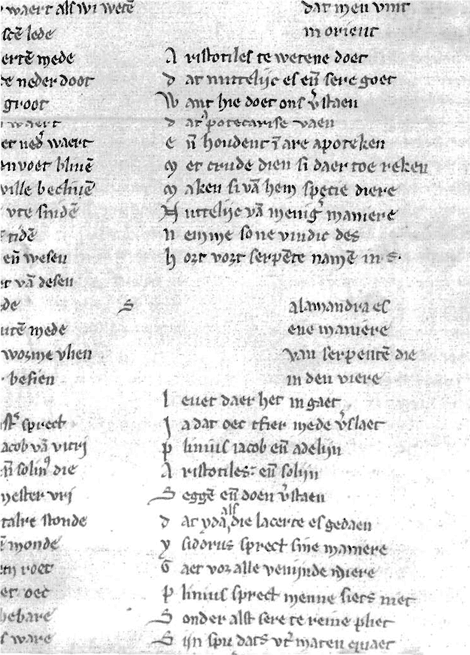 waert alsi wi weten
sce lede
erte mede
te neder doot
groot
waert
et ned' waert
envoet bliuē
ville becliuē
vte sindē
tidē
eñ wesen
vā desen
de
utē mede
worme vlien
besien
sprect
acob vā vitri
solin9 die
mester vri
talre stonde
monde
roet
et oec
hebare
ware
dat men vint
in orient
A ristotiles te wetene doet
d at nuttelijc es eñ sere goet
W ant hie doet ons v'staen
d at potecarise vaen
e ñ houdent ī are apoteken
M et crude dien si daer toe reken
M aken si vā hem specie diere
N uttelijc vā menig' maniere
N emme so ne vindic des
h ort vort serpēte namē in s.
S alamandra es
ene maniere
van serpentē die
in den viere
l euet daer het in gaet
J a dat oec tfier mede v'slaet
P linius iacob eñ adelijn
A ristotiles eñ solijn
S eggē eñ doen v'staen
d at yda als die lacerte es gedaen
y sidorus sprect sine maniere
G aet vor alle venijnde diere
P linius sprect menne siets niet
S onder alst sere te reine pliet
S ijn spu dats vt' maten quaet